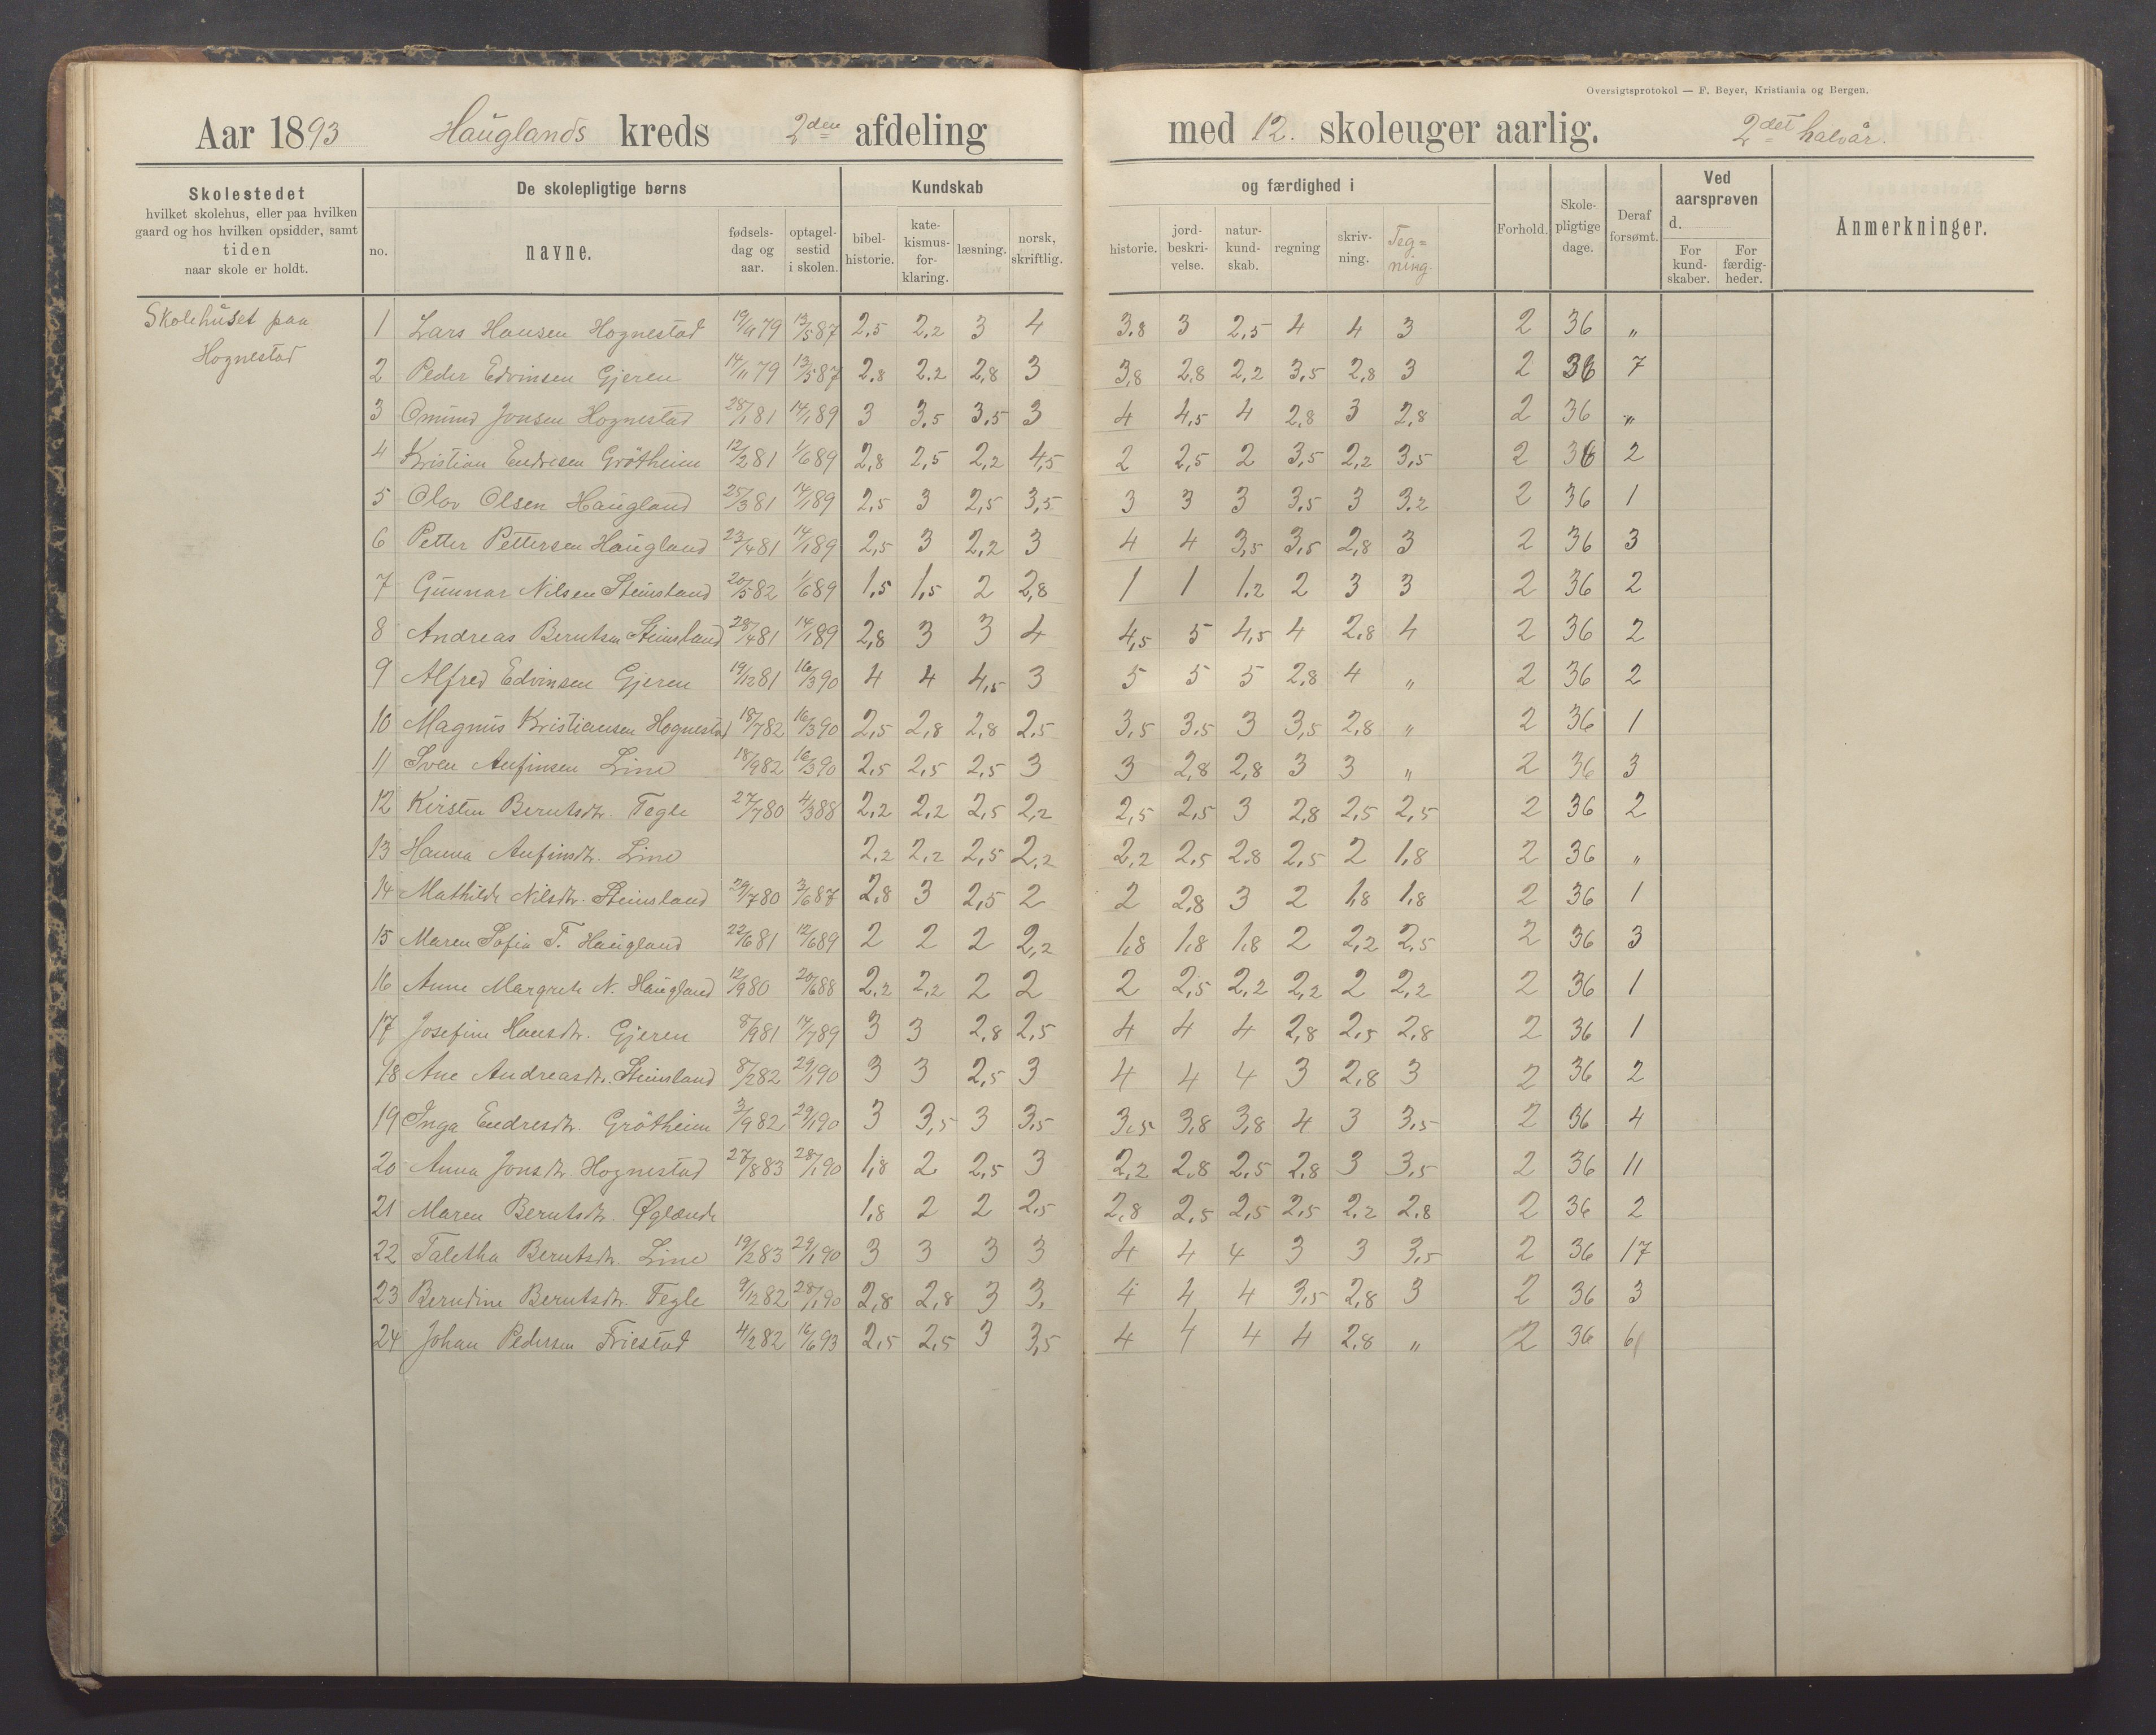 Oversigtsprotokol — F. Beyer, Kristiania og Bergen.
Aar 1893 Hauglands kreds 2den afdeling med 12. skoleuger aarlig. 2det halvår.
Skolestedet hvilket skolehus, eller paa hvilken gaard og hos hvilken opsidder, samt tiden naar skole er holdt.
De skolepligtige børns
no. navne. fødsels-dag og aar. optagel-sestid i skolen.
Kundskab og færdighed i
bibel-historie. kate-kismus-for-klaring. læsning. norsk, skriftlig. historie. jord-beskri-velse. natur-kund-skab. regning skriv-ning. Teg=ning.
Forhold. Skole-pligtige dage. Deraf forsømt.
Ved aarsprøven d. For kund-skaber. For færdig-heder.
Anmerkninger.
Skolehuset paa
Hognestad
1 Lars Hansen Hognestad 79 13/5 87 2,5 2,2 3 4 3.8 3 2,5 4 4 3 2 36 "
2 Peder Edvinsen Gjeren 14/11 79 13/5 87 2,8 2,2 2,8 3 3,8 2,8 2,2 3,5 2,8 3 2 36 7
3 Omund Jonsen Hognestad 28/1 81 14/1 89 3 3,5 3,5 3 4 4,5 4 2,8 3 2,8 2 36 "
4 Kristian Endresen Grötheim 12/2 81 1/6 89 2,8 2,5 2,2 4,5 2 2,5 2 3,5 2,2 3,5 2 36 2
5 Olov Olsen Haugland 25/3 81 14/1 89 2,5 3 2,5 3,5 3 3 3 3,5 3 3.2 2 36 1
6 Petter Pettersen Haugland 23/4 81 14/1 89 2,5 3 2,2 3 4 4 3,5 3,5 2,8 3 2 36 3
7 Gunnar Nilsen Steinsland 20/5 82 1/6 89 1,5 1,5 2 2,8 1 1 1,2 2 3 3 2 36 2
8 Andreas Berntsen Steinsland 28/4 81 14/1 89 2,8 3 3 4 4,5 5 4,5 4 2,8 4 2 36 2
9 Alfred Edvinsen Gjeren 19/12 81 16/3 90 4 4 4,5 3 5 5 5 2,8 4 " 2 36 2
10 Magnus Kristiansen Hognestad 18/7 82 16/3 90 2,5 2,8 2,8 2,5 3,5 3,5 3 3,5 2,8 " 2 36 1
11 Sven Anfinsen Line 18/9 82 16/3 90 2,5 2,5 2,5 3 3 2,8 2,8 3 3 " 2 36 3
12 Kirsten Berntsdtr. Tegle 27/7 80 4/3 88 2,2 2,2 2,5 2,2 2,5 2,5 3 2,8 2,5 2,5 2 36 2
13 Hanna Anfinsdtr. Line 2,2 2,2 2,5 2,2 2,2 2,5 2,8 2,5 2 1,8 2 36 "
14 Mathilde Nilsdtr. Steinsland 29/7 80 3/6 87 2,8 3 2,5 2 2 2,8 3 2 1,8 1,8 2 36 1
15 Maren Sofia T. Haugland 22/6 81 12/6 89 2 2 2 2,2 1,8 1,8 1,8 2 2,2 2,5 2 36 3
16 Anne Margrete N. Haugland 12/9 80 20/6 88 2,2 2,2 2 2 2 2,5 2,2 2,2 2 2,2 2 36 1
17 Josefine Hansdtr. Gjeren 8/9 81 17/7 89 3 3 2,8 2,5 4 4 4 2,8 2,5 2,8 2 36 1
18 Ane Andreasdtr. Steinsland 8/2 82 29/1 90 3 3 2,5 3 4 4 4 3 2,8 3 2 36 2
19 Inga Endresdtr. Grötheim 3/9 82 29/1 90 3 3,5 3 3,5 3,5 3,8 3,8 4 3 3,5 2 36 4
20 Anna Jonsdtr. Hognestad 27/8 83 28/1 90 1,8 2 2,5 3 2,2 2,8 2,5 2,8 3 3,5 2 36 11
21 Maren Berntsdtr. Øglænde 1,8 2 2 2,5 2,8 2,5 2,5 2,5 2,2 2,8 2 36 2
22 Taletha Berntsdtr. Line 19/2 83 29/1 90 3 3 3 3 4 4 4 3 3 3,5 2 36 17
23 Berndine Berntsdtr. Tegle 9/12 82 28/1 90 2,8 2,8 3 3. 4 4 4 3,5 2,8 3 2 36 3
24 Johan Pedersen Friestad 4/2 82 16/6 93 2,5 2,5 3 3,5 4 4 4 4 2,8 " 2 36 6